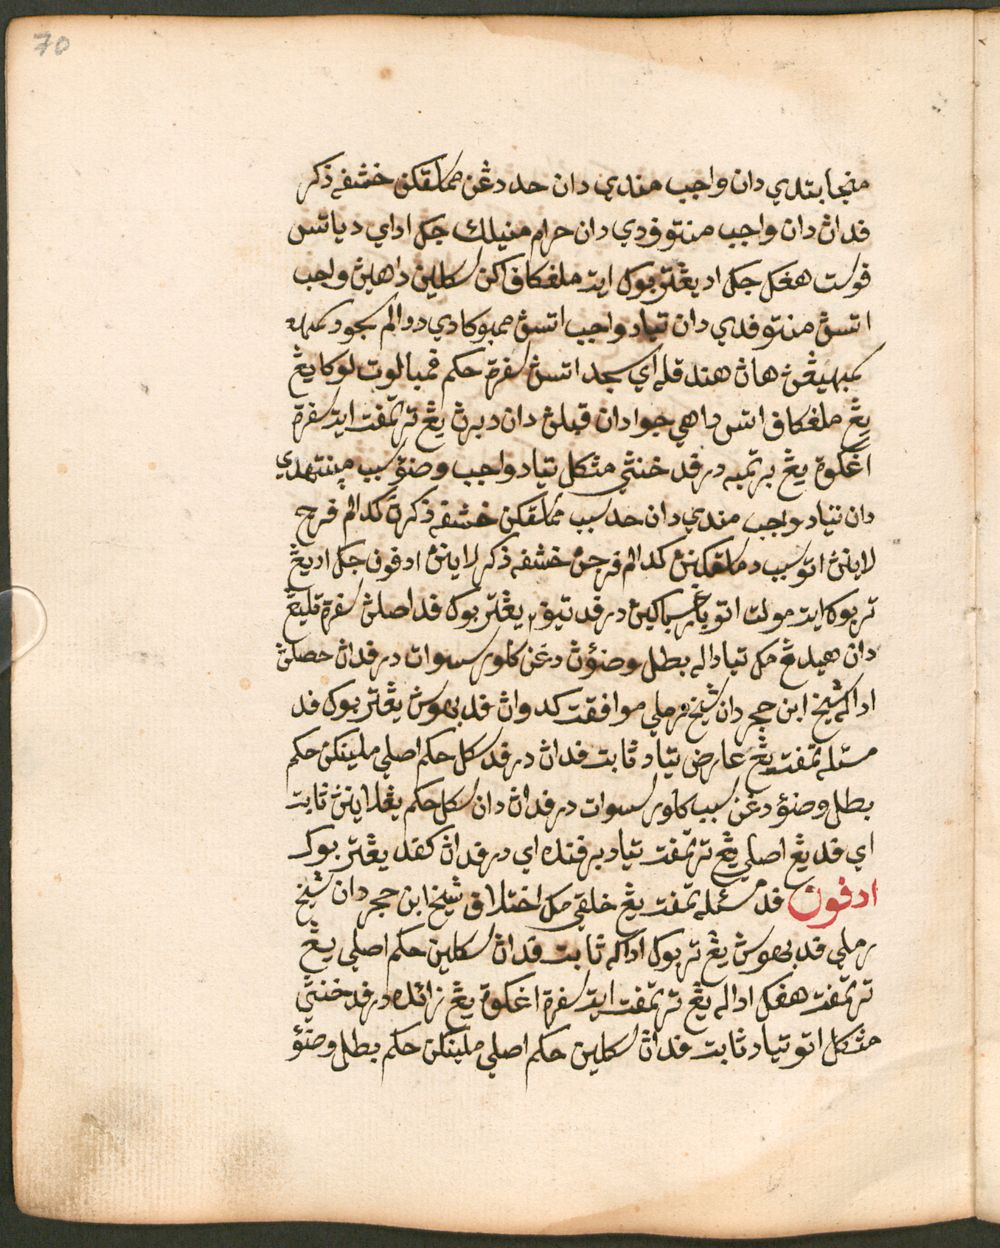 70
منجابتدي دان واجب مندي دان حد دڠن مماسقكن حشفه ذكر
فدان دان واجب منوتوفدي دان حرام منيلك جك اداي دياتس
فوست هڠك جك اد يڠتربوك ايت ملڠكافكن سكلين داهين واجب
اتسڽ منوتوفدي دان تياد واجب اتسڽ ممبوكادي دوالم سجود
كبهيڠن هاڽ هند قله اي سجد اتسڽ سفرة حكم فمبالوت لوك يڠ
يڠ ملڠكاف اتس داهي جوا دان قبلن دان دبرن يڠ ترتمفت ايت سفرة
اڠكوة يڠ برتمبه درفد خنثى مشكل تياد واجب وضؤ سبب مننتهدي
دان تياد واجب مندي دان حد سبب مماسقكن حشفه ذكرڽ كدالم فرج
لاينڽ اتو سبب دماسقكنڽ كدالم فرجڽ حشفه ذكر لاينڽ ادفون جك اد يڠ
تربوك ايت مولت اتو يڠ سباگين درفد تيوف يڠتربوك فد اصلن سفرة تليڠ
دان هيدڠ مك تيادله بطل وضؤن دڠن كلور سسوات درفدان حصلن
اداله شيخ ابن حجر دان شيخ رملي موافقت كدوان فد بهوس يڠتربوك فد
مسئله تمفت يڠ عارض تياد ثابت فدان درفد سكل حكم اصلي ملينكن حكم
بطل وضؤ دڠن سبب كلور سسوات درفدان دان سكل حكم يڠلاينن ثابت
اي فد يڠ اصلي يڠ ترتمفت تياد برفنده اي درفدان كفد يڠتربوك
ادفون فد مسئله تمفت يڠ خلقي مك اختلاف شيخ ابن حجر دان شيخ
رملي فد بهوس يڠ تربوك اداله ثابت فدان سكلين حكم اصلي يڠ
ترتمفت هڠك اداله يڠ ترتمفت ايت سفرة اڠكوة يڠ زائده درفد خنثى
مشكل اتو تياد ثابت فدان سكلين حكم اصلي ملينكن حكم بطل وضؤ